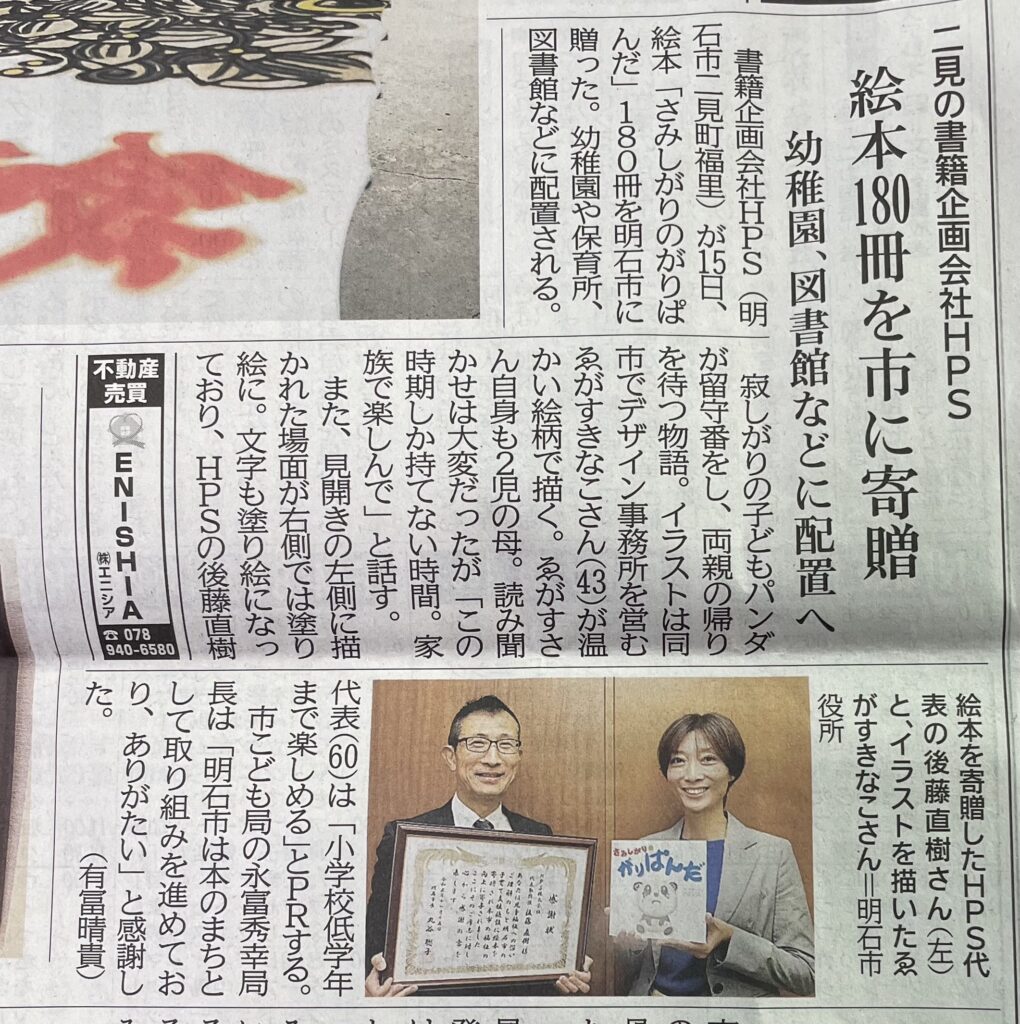 二見の書籍企画会社HPS
絵本180冊を市に寄贈
幼稚園、図書館などに配置へ
書籍企画会社HPS（明
石市二見町福里）が15日、
絵本「さみしがりのがりぱ
んだ」180冊を明石市に
贈った。幼稚園や保育所、
図書館などに配置される。
寂しがりの子どもパンダ
が留守番をし、両親の帰り
を待つ物語。イラストは同
市でデザイン事務所を営む
ゑがすきなこさん(43)が温
かい絵柄で描く。ゑがすさ
ん自身も2児の母。読み聞
かせは大変だったが「この
時期しか持てない時間。家
族で楽しんで」と話す。
また、見開きの左側に描
かれた場面が右側では塗り
絵に。文字も塗り絵になっ
ており、HPSの後藤直樹
代表(60)は「小学校低学年
まで楽しめる」とPRする。
市こども局の永富秀幸局
長は「明石市は本のまちと
して取り組みを進めてお
り、ありがたい」と感謝し
た。
（有冨晴貴）
絵本を寄贈したHPS代
表の後藤直樹さん（左）
と、イラストを描いたゑ
がすきなこさん＝明石市
役所
感謝状
さみしがりの
がりぱんだ
不動産
売買
ENISHIA
㈱エニシア
☎078
940-6580